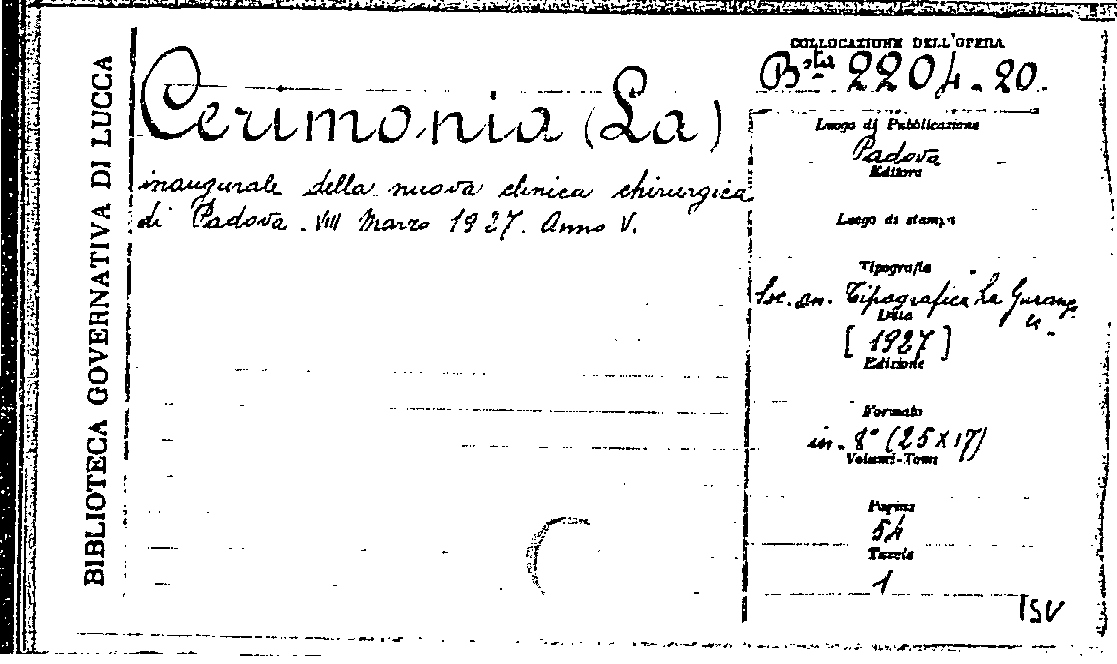 BIBLIOTECA GOVERNATIVA DI LUCCA
Cerimonia (La)
inaugurale della nuova clinica chirurgica
di Padova. VIII Marzo 1927. Anno V.
COLLOCAZIONE DELL'OPERA
B.sta 2204-20.
Luogo di Pubblicazione
Padova
Editore
Luogo di stampa
Tipografia
Soc. an. Tipografica La
Data
[1927]
Edizione
Formato
in-8° (25x17)
Volumi-Tomi
Pagine
54
Tavole
1
ISV